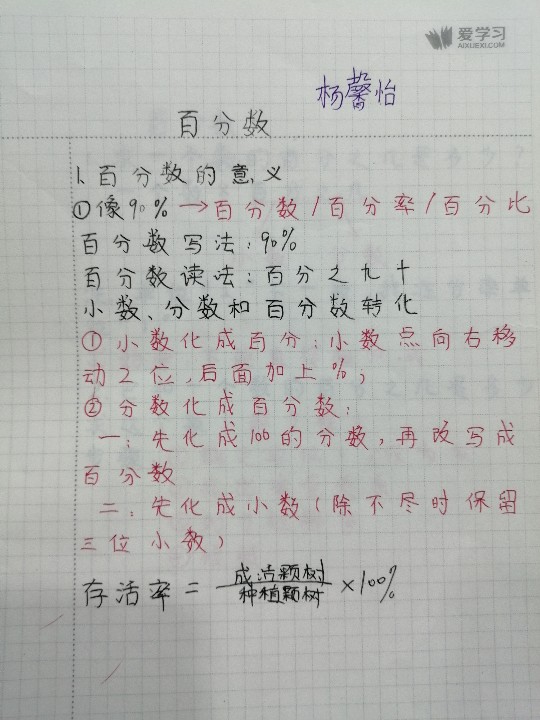 爱学习
AIXUEXI.COM
杨馨怡
百分数
1.百分数的意义
①像90%→百分数/百分率/百分比
百分数写法:90%
百分数读法:百分之九十
小数、分数和百分数转化
①小数化成百分:小数点向右移
动2位,后面加上%;
②分数化成百分数:
一:先化成100的分数,再改写成
百分数
二:先化成小数(除不尽时保留
三位小数)
存活率=成活颗树/种植颗树×100%